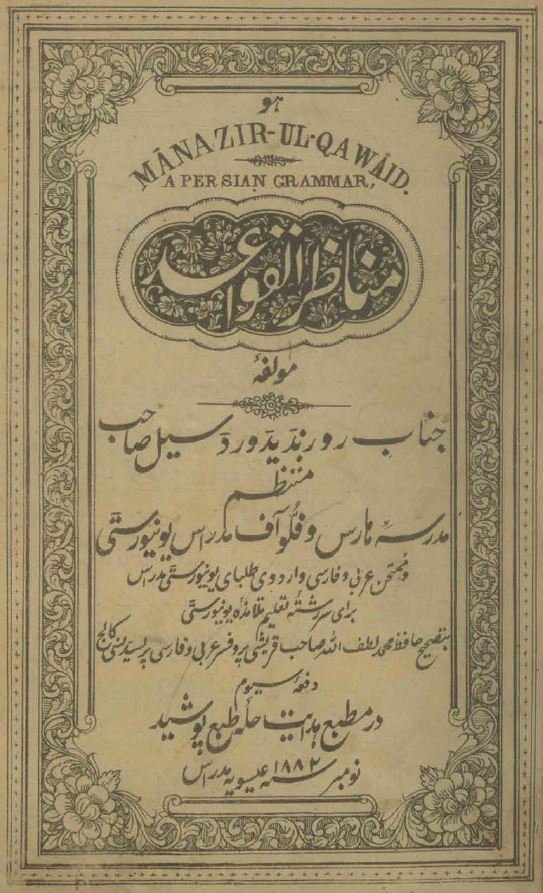 ہو
MĀNAZIR-UL-QAWĀID.
A PERSIAN GRAMMAR.
مناظر القواعد
مولفۂ
جناب رورنڈ ایڈورڈ سیل صاحب
منتظم
مدرسۂ ہارس و فلو آف مدراس یونیورستی
و ممتحن عربی و فارسی و اردوی طلبای یونیورستی مدراس
برای سررشتہ تعلیم تلامذۂ یونیورستی
بتصحیح حافظ محمد لطف اللہ صاحب قریشی پروفسر عربی و فارسی پرسیدنسی کالج
دفعۂ سیوم
در مطبع ہدایت حلہ طبع پوشید
نومبر ۱۸۸۲ سنہ عیسویہ مدراس